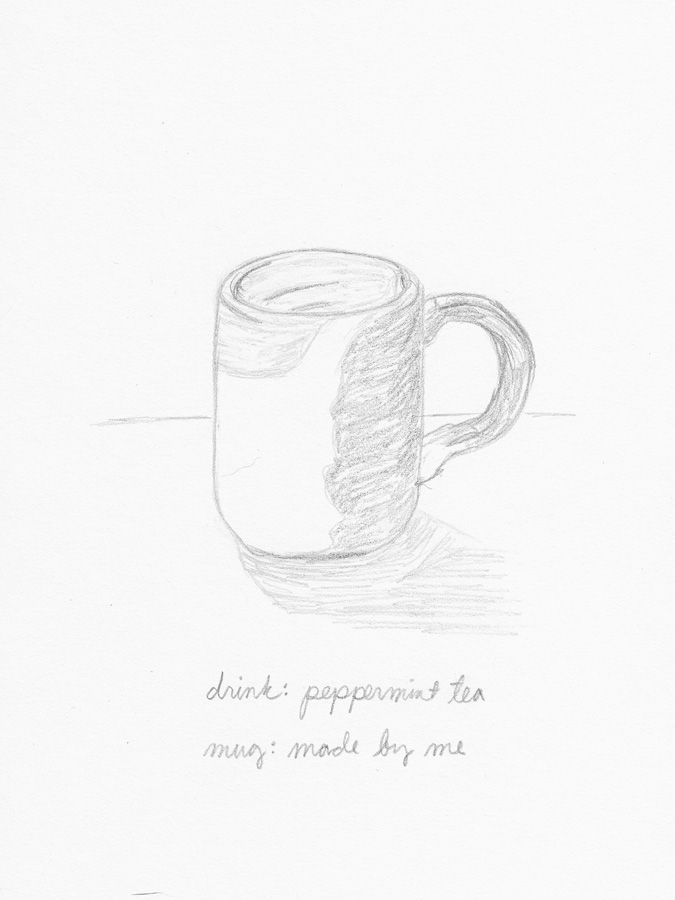 drink: peppermint tea
mug: made by me